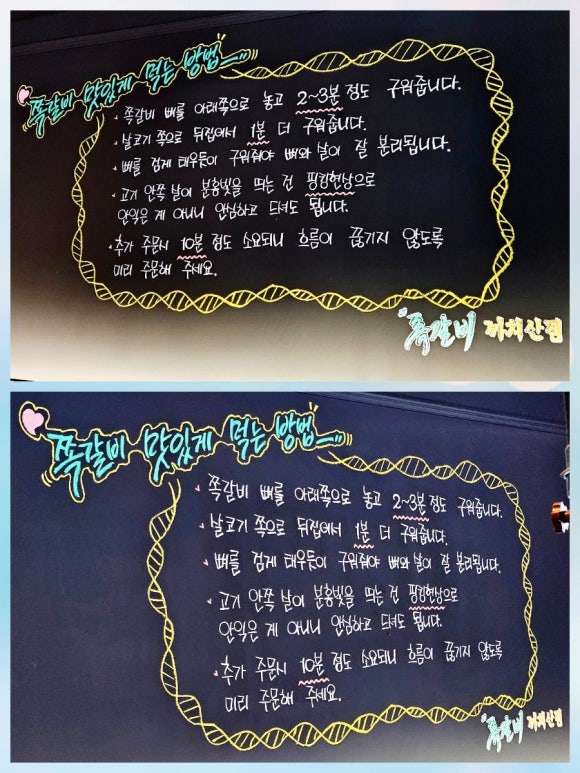 쪽갈비 맛있게 먹는 방법
쪽갈비 뼈를 아래쪽으로 놓고 2~3분 정도 구워줍니다.
살코기 쪽으로 뒤집에서 1분 더 구워줍니다.
뼈를 검게 태우듯이 구워줘야 뼈와 살이 잘 분리됩니다.
고기 안쪽 살이 분홍빛을 띄는 건 핑킹현상으로
안익은 게 아니니 안심하고 드셔도 됩니다.
추가 주문시 10분 정도 소요되니 흐름이 끊기지 않도록
미리 주문해 주세요.
쪽갈비 까치산점
쪽갈비 맛있게 먹는 방법
쪽갈비 뼈를 아래쪽으로 놓고 2~3분 정도 구워줍니다.
살코기 쪽으로 뒤집에서 1분 더 구워줍니다.
뼈를 검게 태우듯이 구워줘야 뼈와 살이 잘 분리됩니다.
고기 안쪽 살이 분홍빛을 띄는 건 핑킹현상으로
안익은 게 아니니 안심하고 드셔도 됩니다.
추가 주문시 10분 정도 소요되니 흐름이 끊기지 않도록
미리 주문해 주세요.
쪽갈비 까치산점